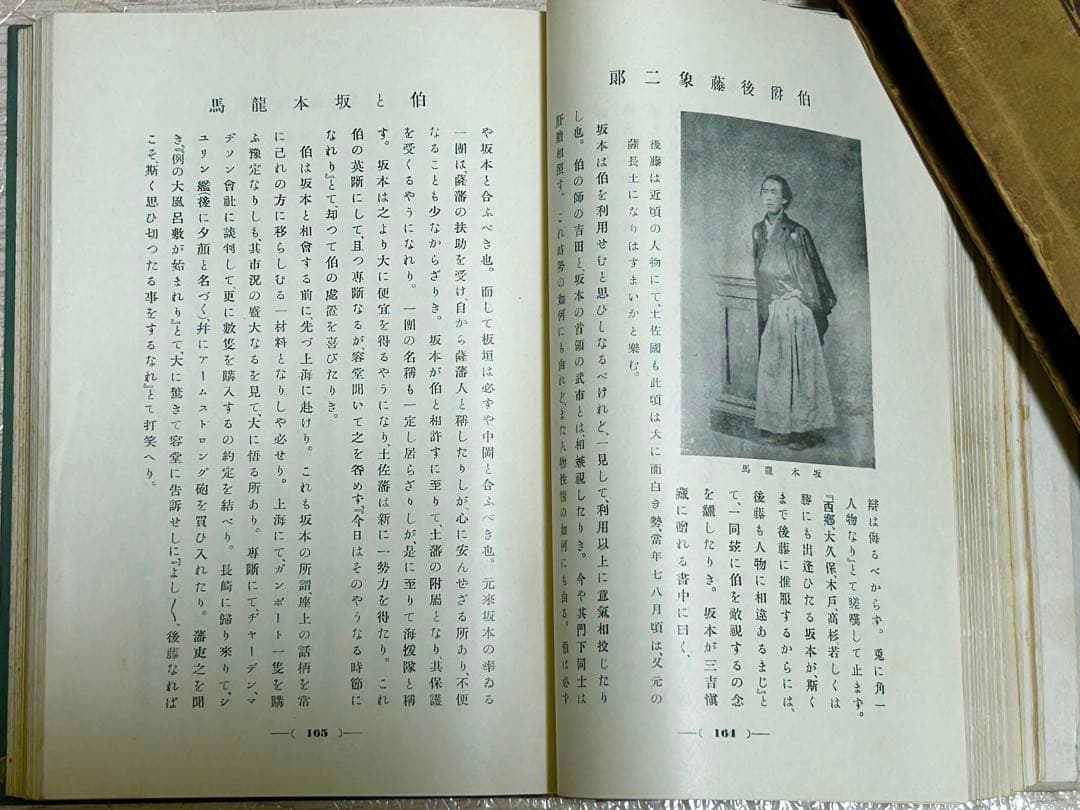 伯爵後藤象二郎
坂本龍馬
辯は侮るべからず。兎に角一
人物なり』とて嗟嘆して止ます。
『西郷、大久保、木戸、高杉若しくは
勝にも出逢ひたる坂本が、斯く
まで後藤に推服するからには、
後藤も人物に相違あるまじ』と
て、一同玆に伯を敵視するの念
を飜したりき。坂本が三吉愼
藏に贈れる書中に曰く、
後藤は近頃の人物にて、土佐國も此頃は大に面白き勢、當年七八月頃は、又元の
薩長土になりはすまいかと樂む。
坂本は伯を利用せむと思ひしなるべけれど、一見して、利用以上に意氣相投じたり
し也。伯の師の吉田と、坂本の首領の武市とは、相嫉視したりき。今や其門下同士は
肝膽相照す。これ時勢の如何にも由れど、また人物性情の如何にも由る。伯は必ず
— ( 164 ) —
伯と坂本龍馬
や坂本と合ふべき也。而して板垣は必ずや中岡と合ふべき也。元來坂本の率ゐる
一團は、薩藩の扶助を受け自から薩藩人と稱したりしが、心に安んせざる所あり、不便
なることも少なからざりき。坂本が伯と相許すに至りて、土藩の附屬となり、其保護
を受くるやうになれり。一團の名稱も一定し居らざりしが、是に至りて海援隊と稱
す。坂本は之より大に便宜を得るやうになり、土佐藩は新に一勢力を得たり。これ
伯の英斷にして、且つ專斷なるが、容堂聞いて之を咎めず『今日はそのやうなる時節に
なれり』とて、却つて伯の處置を喜びたりき。
伯は坂本と相會する前に、先づ上海に赴けり。これも坂本の所謂、座上の話柄を常
に己れの方に移らしむる一材料となりしや必せり。上海にて、ガンボート一隻を購
ふ豫定なりしも、其市況の盛大なるを見て、大に悟る所あり。專斷にて、ヂャーデン、マ
ヂソン會社に談判して更に數隻を購入するの約定を結べり。長崎に歸り來りて、シ
ユリン艦(後に夕顏と名づく)、幷にアームストロング砲を買ひ入れたり。藩吏之を聞
き『例の大風呂敷が始まれり』とて、大に驚きて容堂に告訴せしに『よし〱、後藤なれば
こそ、斯く思ひ切つたる事をするなれ』とて打笑へり。
— ( 165 ) —